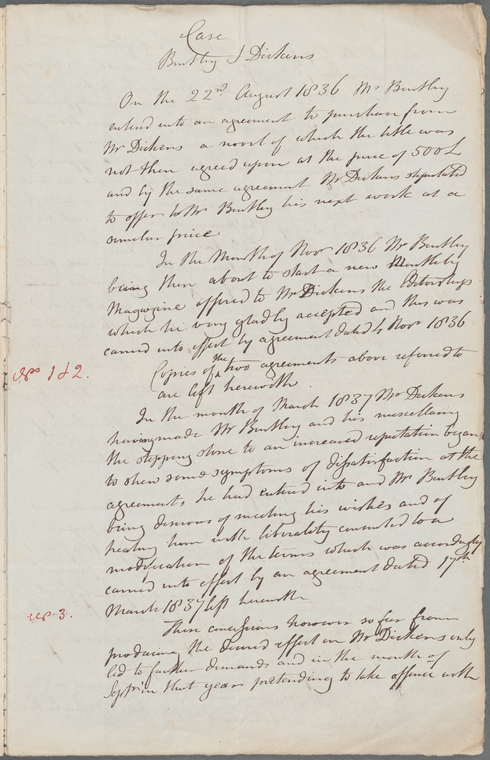 Case
Bentley v Dickens
On the 22nd August 1836 Mr Bentley
entered into an agreement to purchase from
Mr Dickens a novel of which the title was
not then agreed upon at the price of 500£
and by the same agreement Mr Dickens stipulated
to offer to Mr Bentley his next work at a
similar price
In the Month of Novr 1836 Mr Bentley
being then about to start a new Monthly
Magazine offered to Mr Dickens the Editorship
which he very gladly accepted and this was
carried into effect by agreement dated 4 Novr 1836
Copies of the two agreements above referred to
are left herewith
1 & 2.
In the month of March 1837 Mr Dickens
having made Mr Bentley and his miscellany
the stepping stone to an increased reputation began
to shew some symptoms of dissatisfaction at the
agreements he had entered into and Mr Bentley
being desirous of meeting his wishes and of
treating him with liberality consented to a
modification of the terms which was accordingly
carried into effect by an agreement dated 17th
March 1837 left herewith
3.
These concessions however so far from
producing the desired effect on Mr Dickens only
led to further demands and in the month of
Septr in that year pretending to take offence with